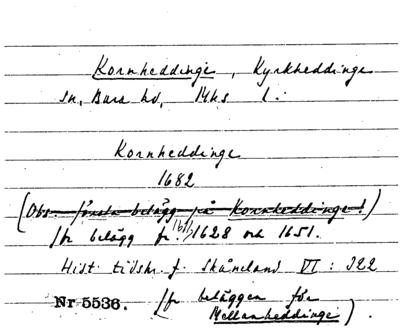 Kornheddinge, Kyrkheddinge
sn, Bara hd, Mhs l:
Kornheddinge
1682
(Obs. första belägg på Kornheddinge!)
Jfr belägg fr. 1628 och 1651.
Hist. tidskr. f. Skåneland VI: 322
Nr 5536. (Jfr beläggen för
Mellanheddinge).